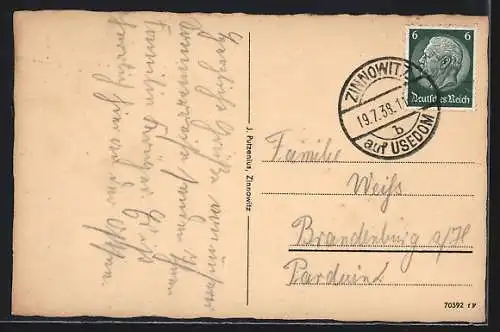 Herzliche Grüße
Sommerreise senden Ihnen
Familie
herzlich hier an der Ostsee
J. Putzenius, Zinnowitz
6 6
Deutsches Reich
ZINNOWITZ
19.7.38.11
b
auf USEDOM
Familie
Weiß
Brandenburg a/H
Parduin
70392